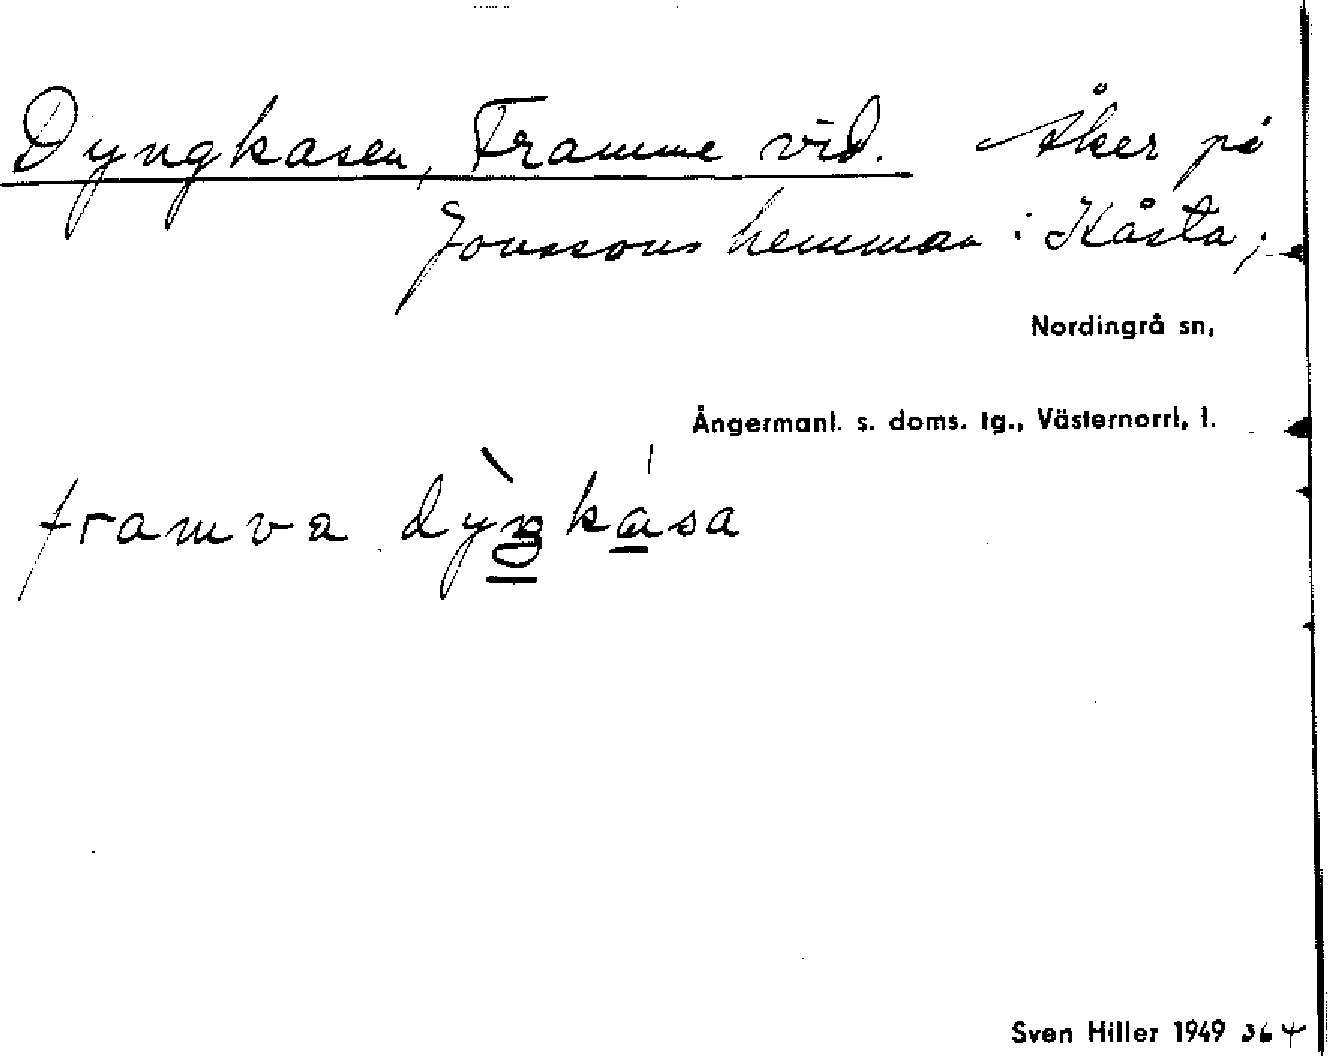 Dyngkasen, Framme vid. Åker på
Jonssons hemman i Kåsta,
Nordingrå sn,
Ångermanl. s. doms. tg., Västernorrl. l.
framva dỳŋkása
Sven Hiller 1949 364